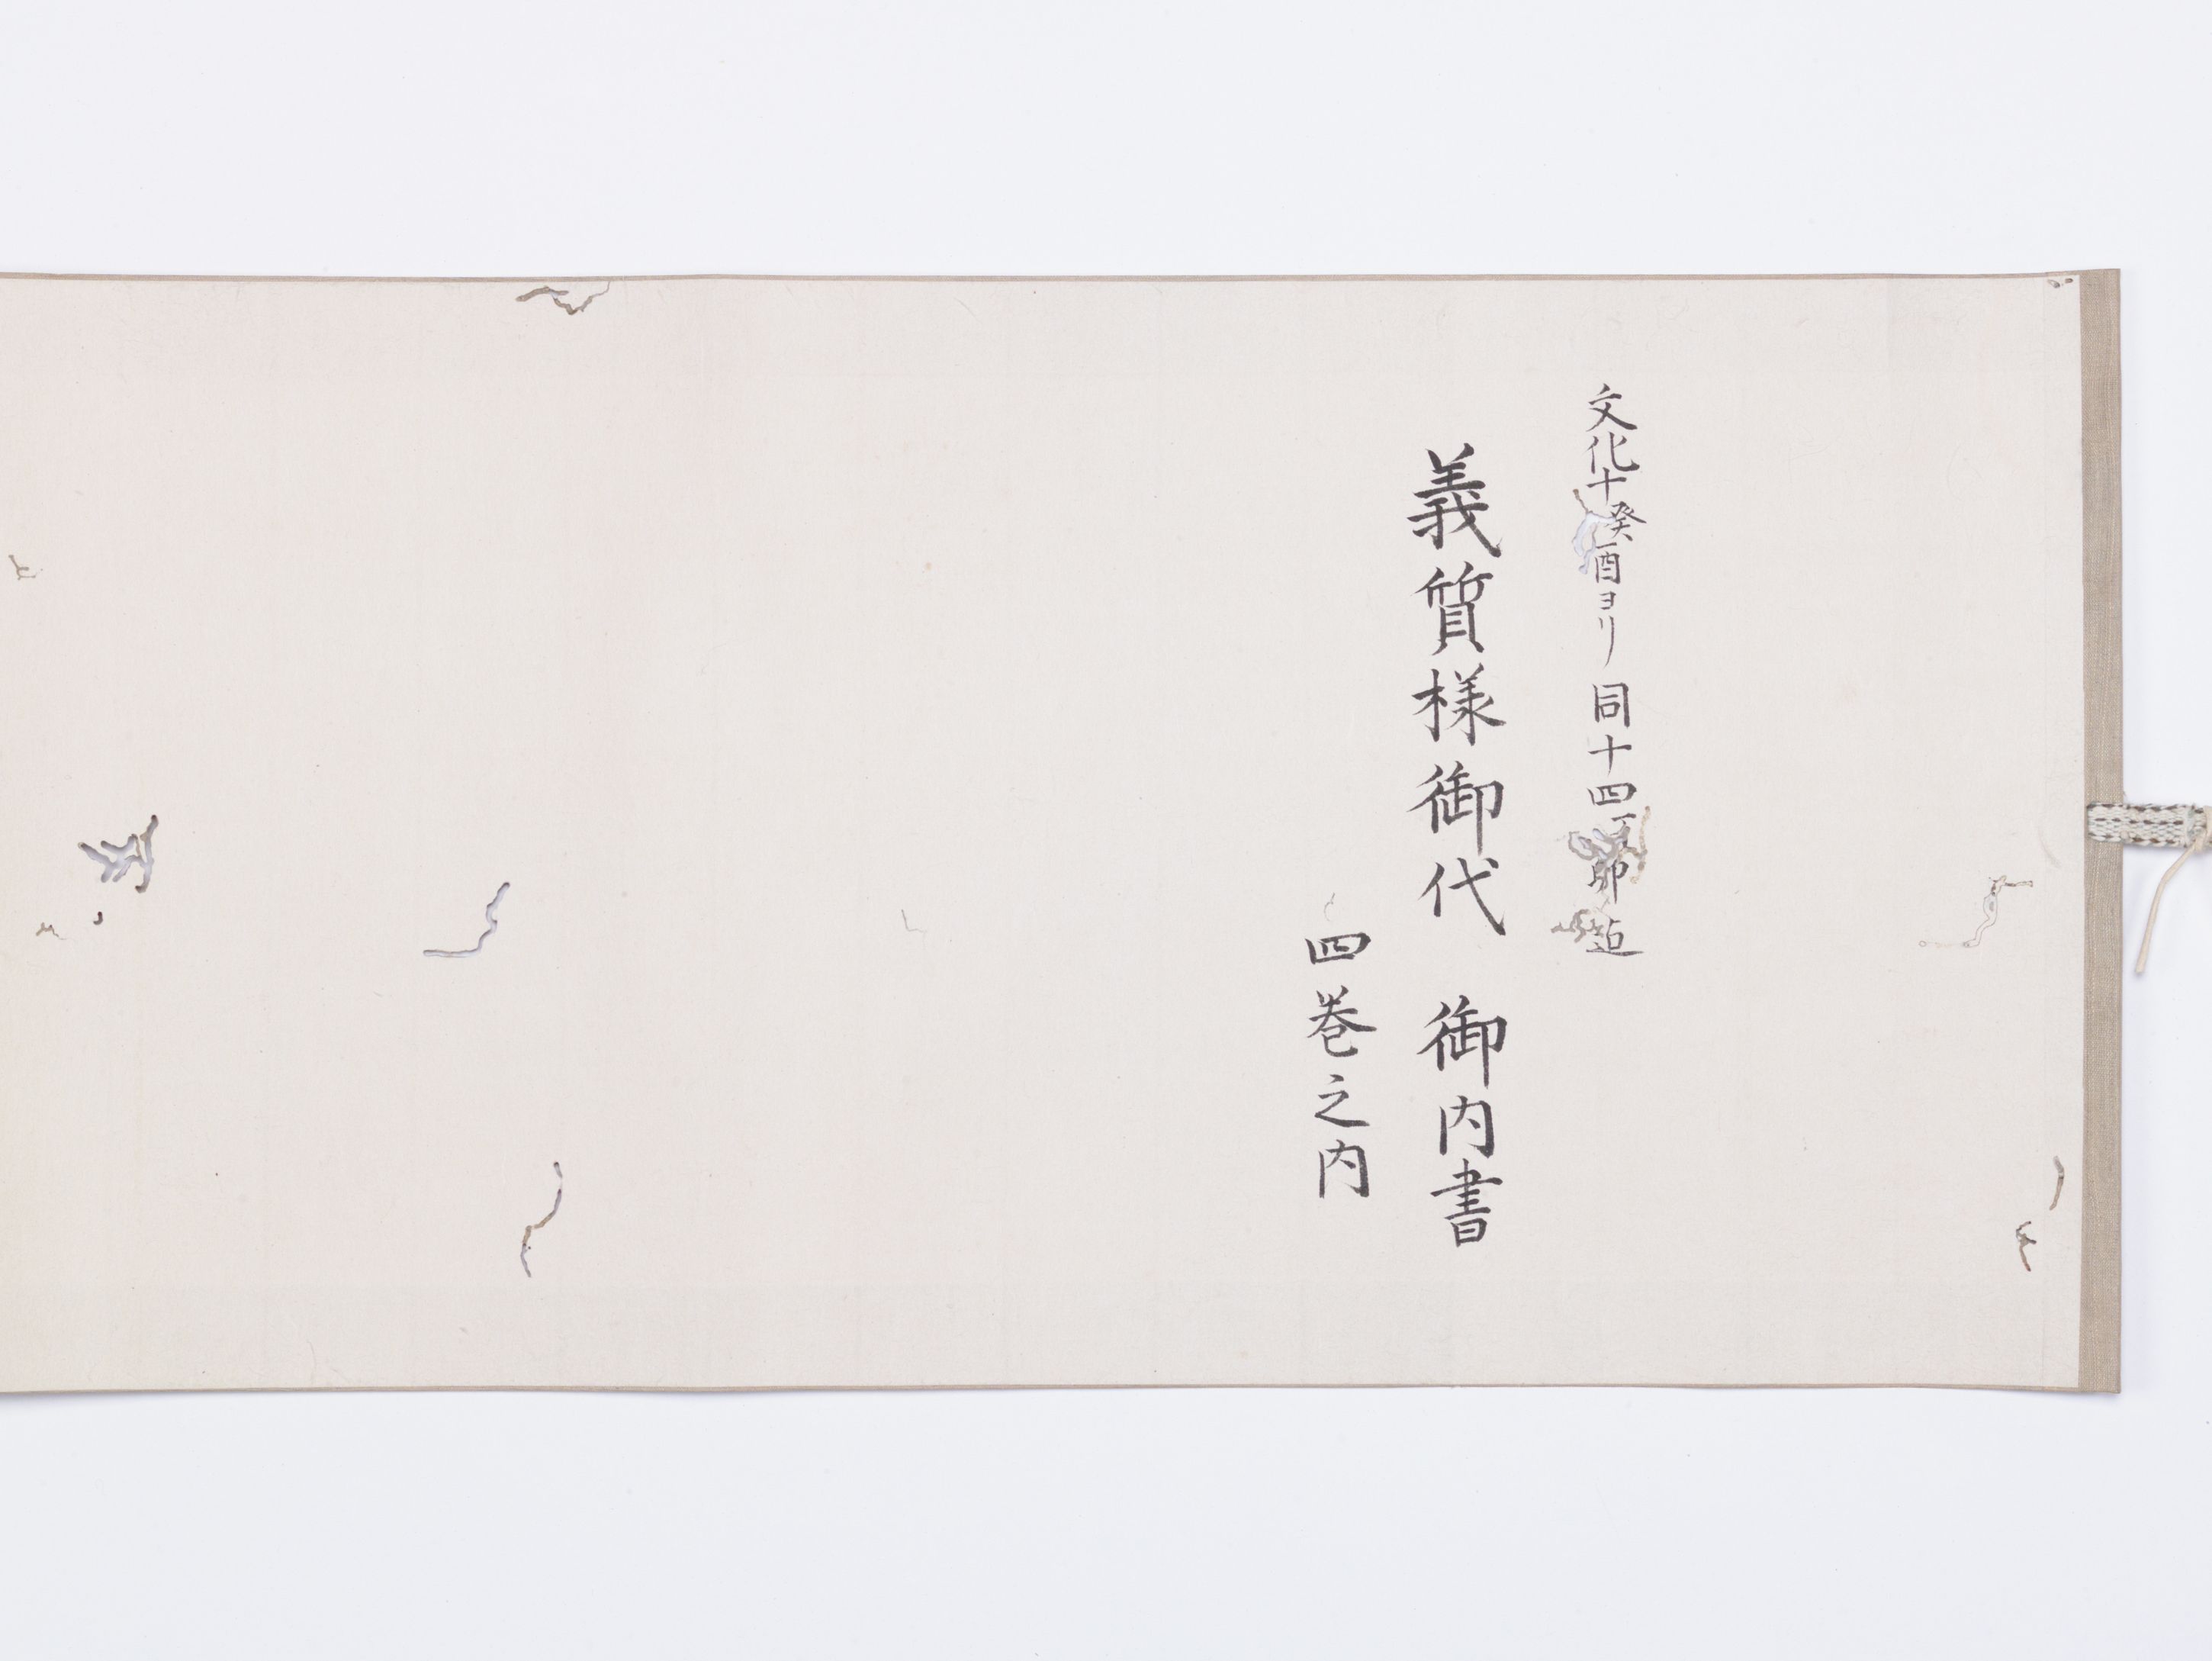 文化十癸酉ヨリ 同十四丁卯迠
義質様御代 御内書
四巻之内